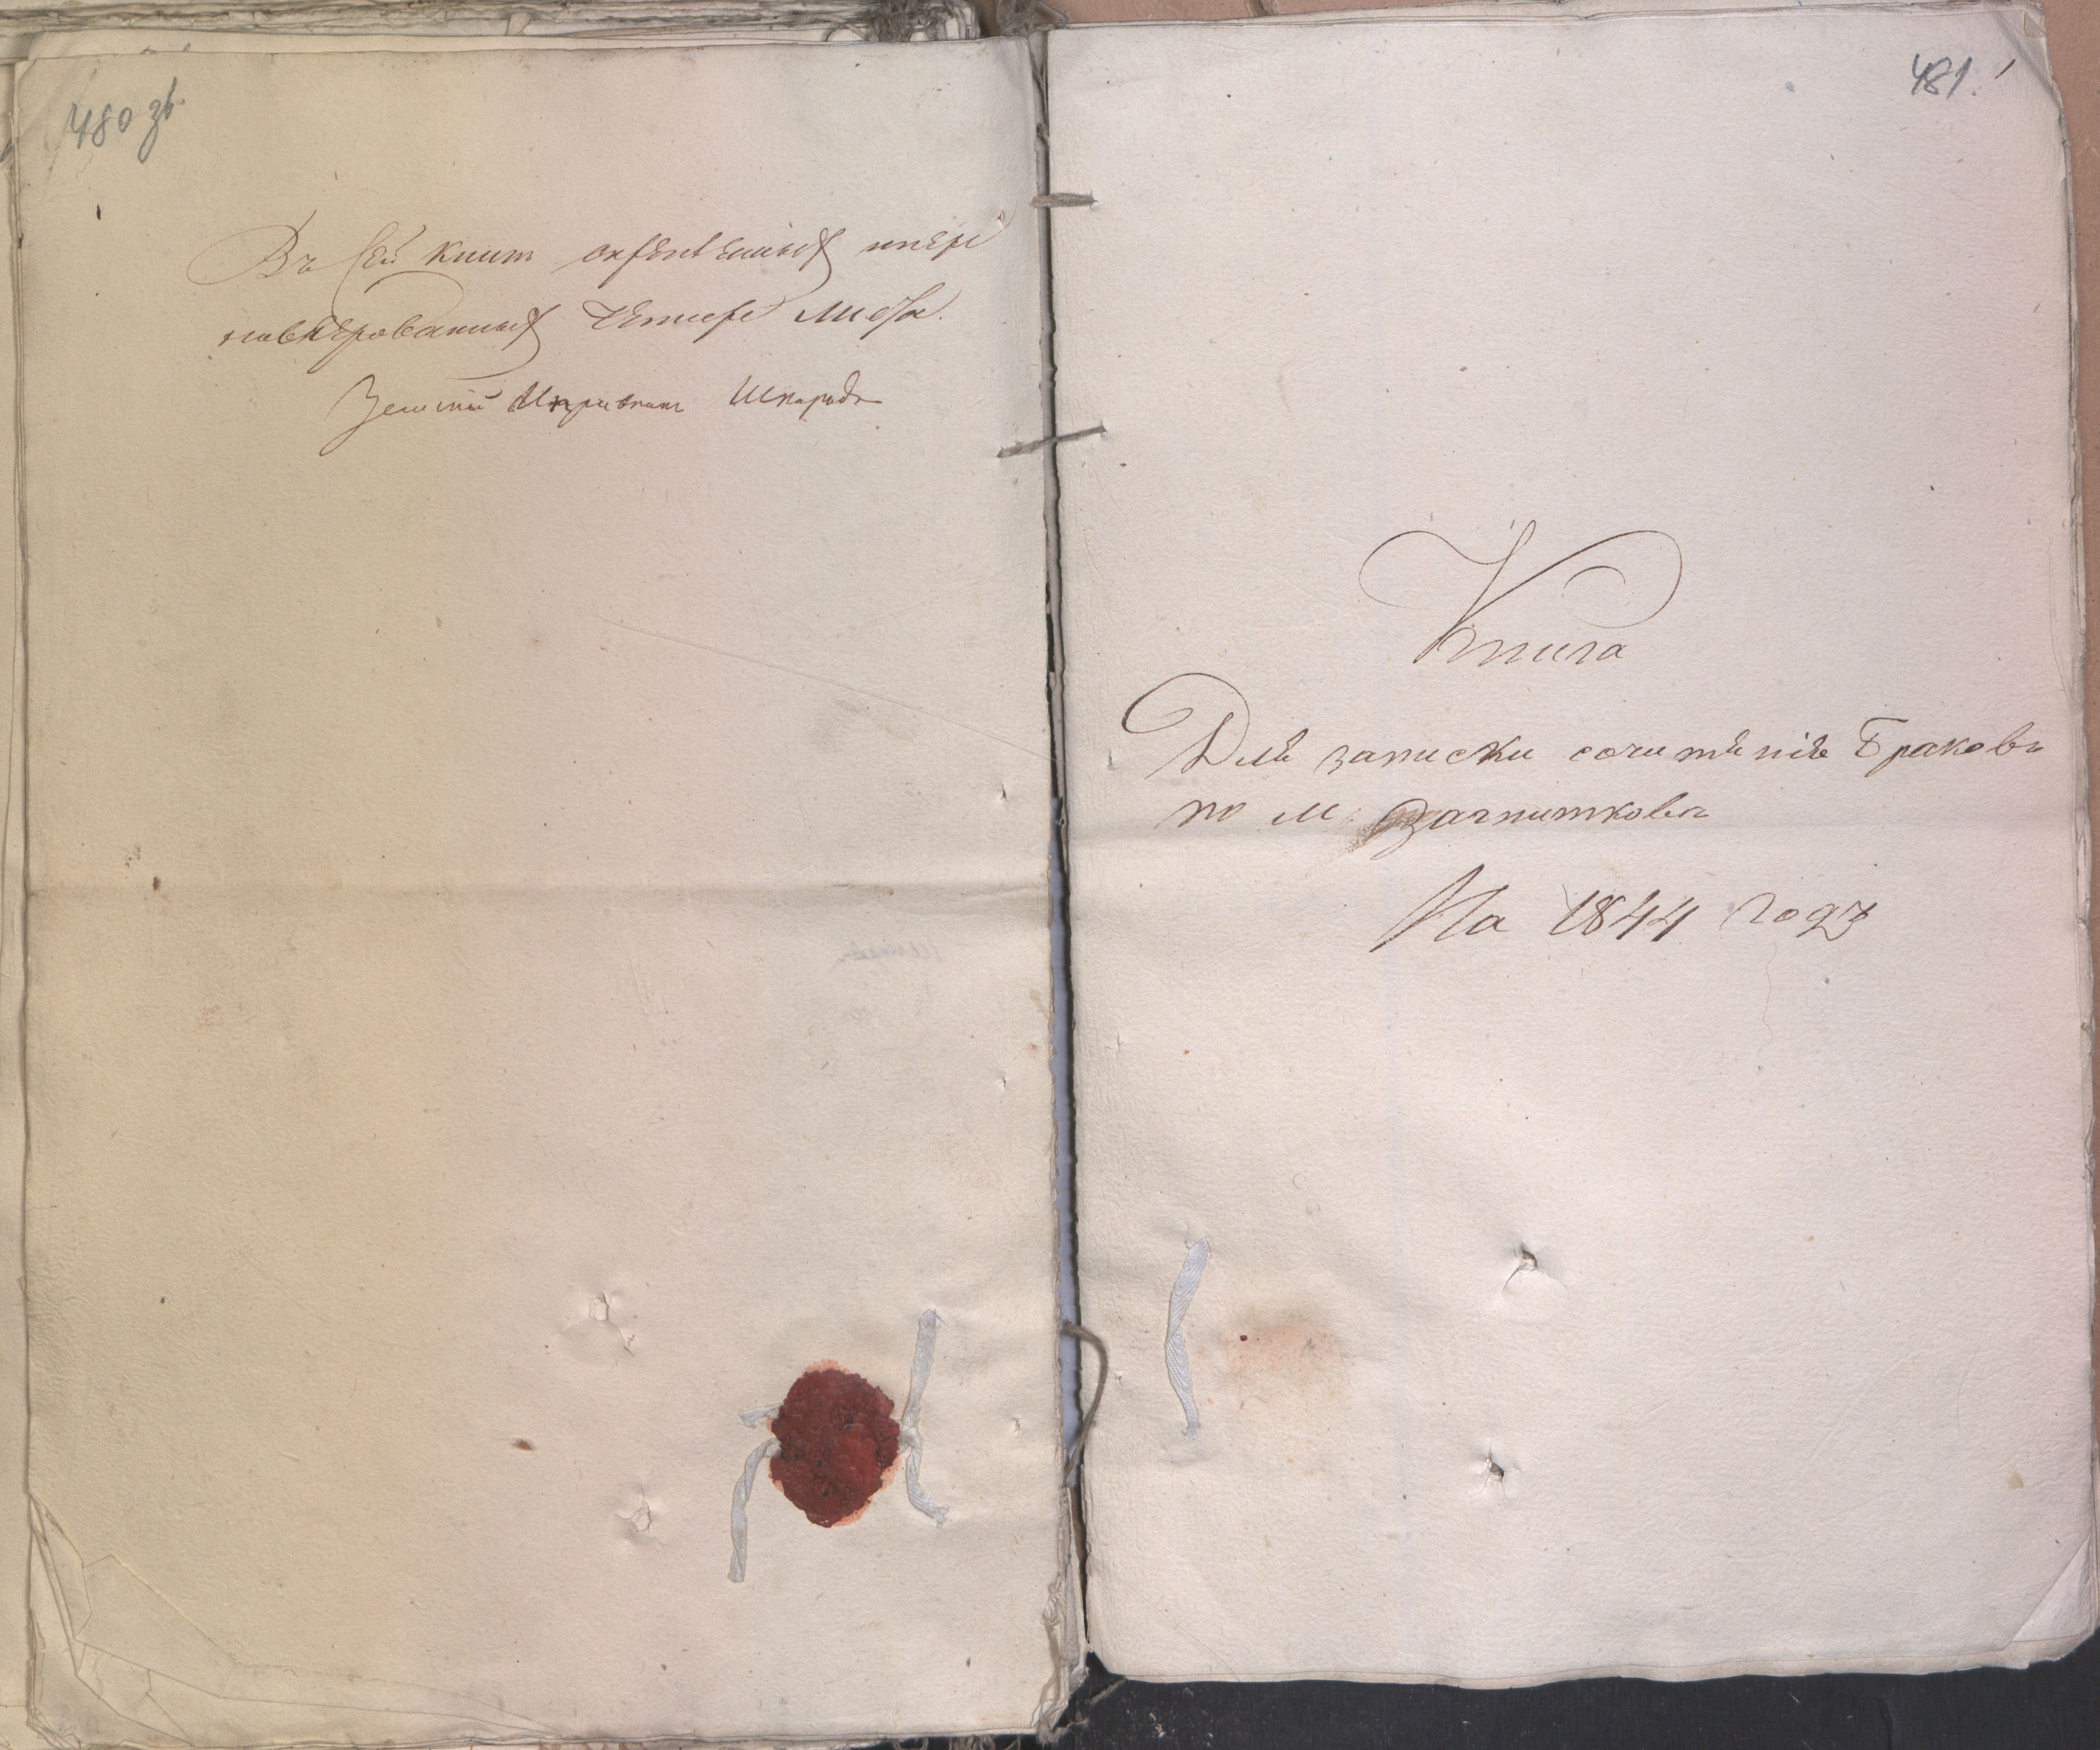 480 зв.
Въ сей книги скрѣпленныхъ ипере
нумерованныхъ Четыре листа.
Земскій Исправникъ
481. 1
Книга
Для записки сочитаніе Браковъ
по м Загнитковъ
На 1844 годъ